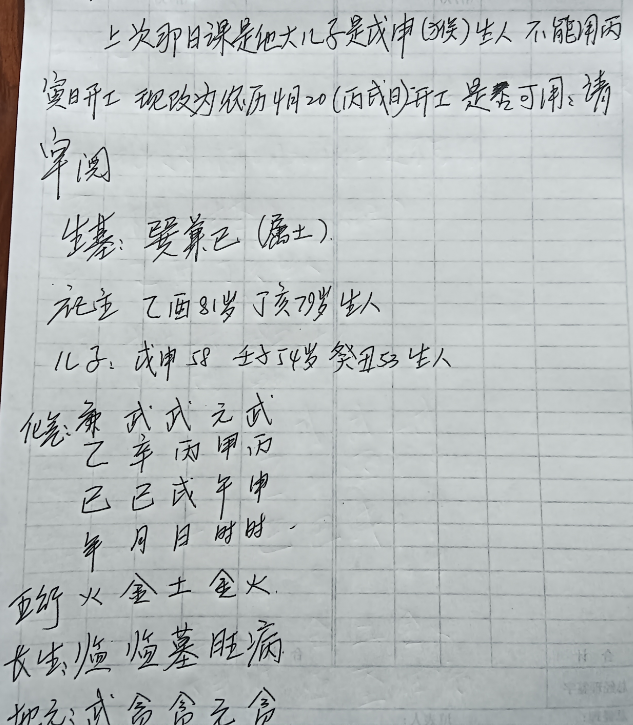 上次那日课是他大儿子是戊申(猴)生人 不能用丙
寅日开工 现改为农历4月20(丙戌日)开工 是否可用：请
审阅
生基：巽兼巳(属土)
福主 乙酉81岁 丁亥79岁生人
儿子：戊申58 壬子54岁 癸丑53生人
化气：廉 武 武 元 武
乙 辛 丙 甲 丙
巳 巳 戌 午 申
年 月 日 时 时
五行 火 金 土 金 火
长生：临 临 墓 旺 病
地元：武 贪 贪 元 贪
合 计